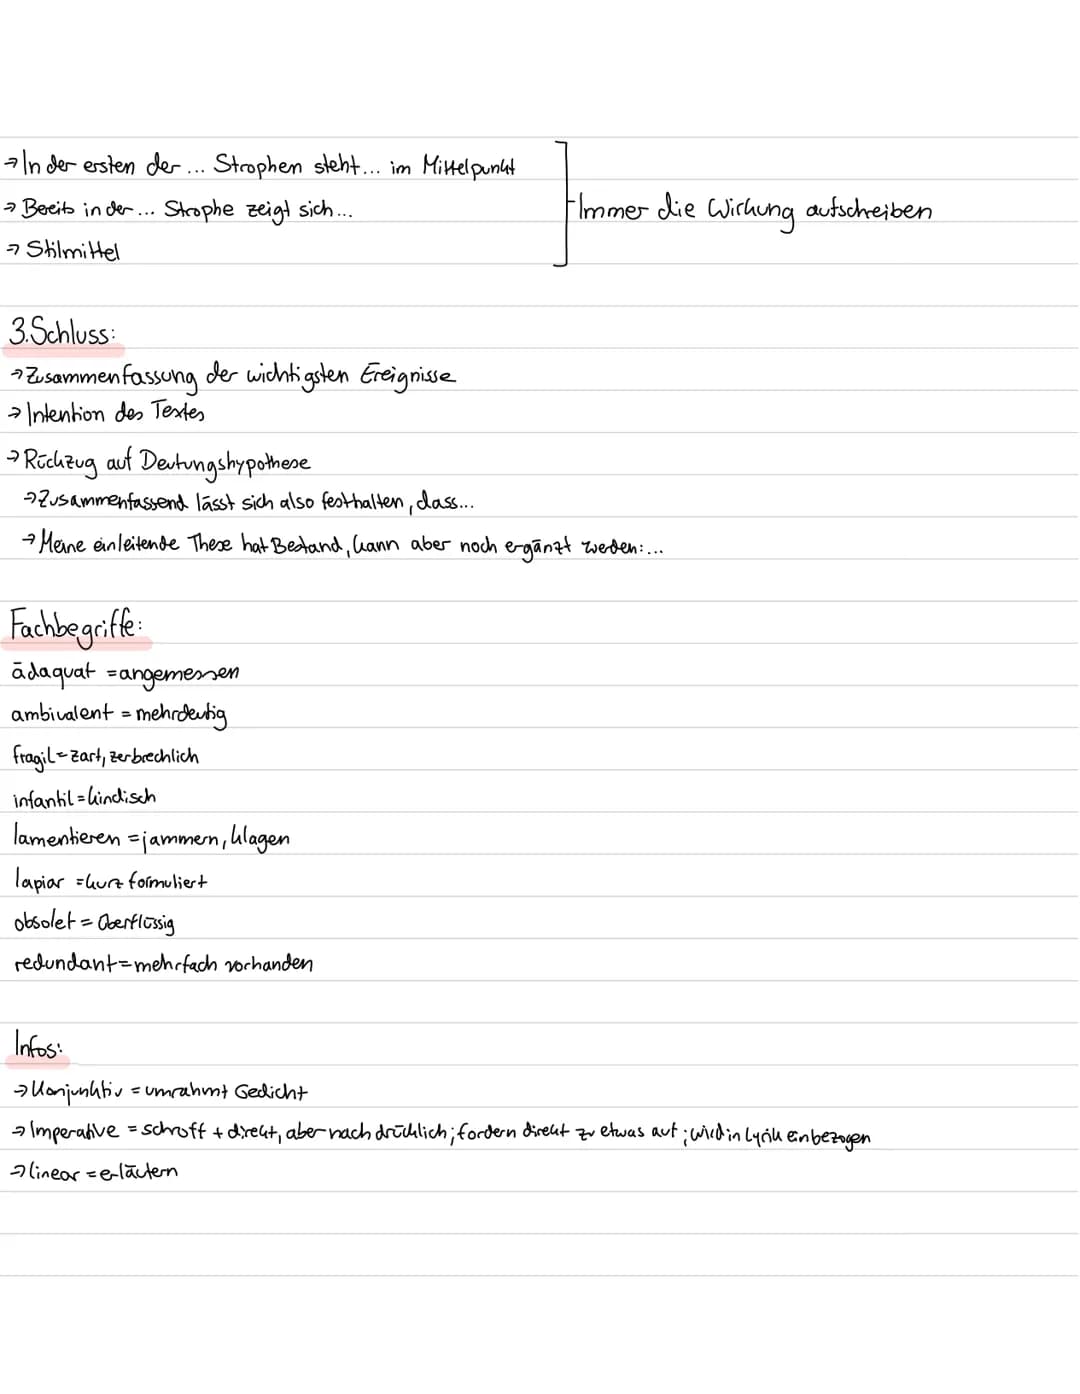 → In der ersten der ... Strophen steht... im Mittelpunkt
→ Bereits in der ... Strophe zeigt sich ...
Immer die Wirkung aufschreiben
→ Stilmittel
3. Schluss:
→ Zusammenfassung der wichtigsten Ereignisse
→ Intention des Textes
→ Rückzug auf Deutungshypothese
→ Zusammenfassend lässt sich also festhalten, dass...
→ Meine einleitende These hat Bestand, kann aber noch ergänzt werden: ...
Fachbegriffe:
ädaquat = angemessen
ambivalent = mehrdeutig
fragil = zart, zerbrechlich
infantil = kindisch
lamentieren = jammern, klagen
lapiar = kurz formuliert
obsolet = Überflüssig
redundant = mehrfach vorhanden
Infos:
→ Konjunktiv = umrahmt Gedicht
→ Imperative = schroff + direkt, aber nach drücklich; fordern direkt zu etwas auf; wird in Lyrik einbezogen
→ linear = erläutern